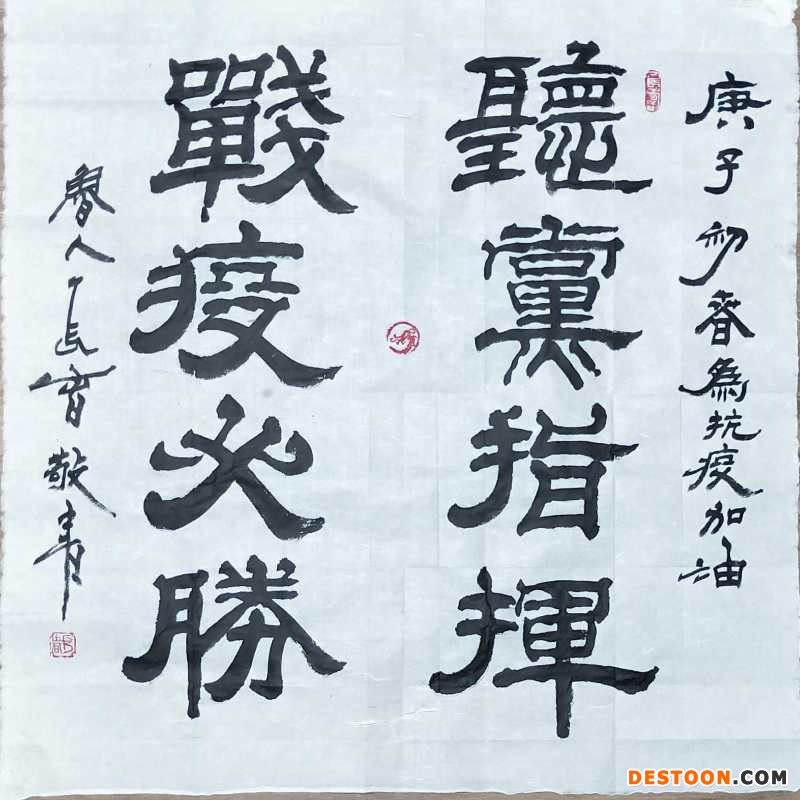 庚子初春為抗疫加油
聽黨指揮
戰疫必勝
魯人丁長育敬書
DESTOON.COM